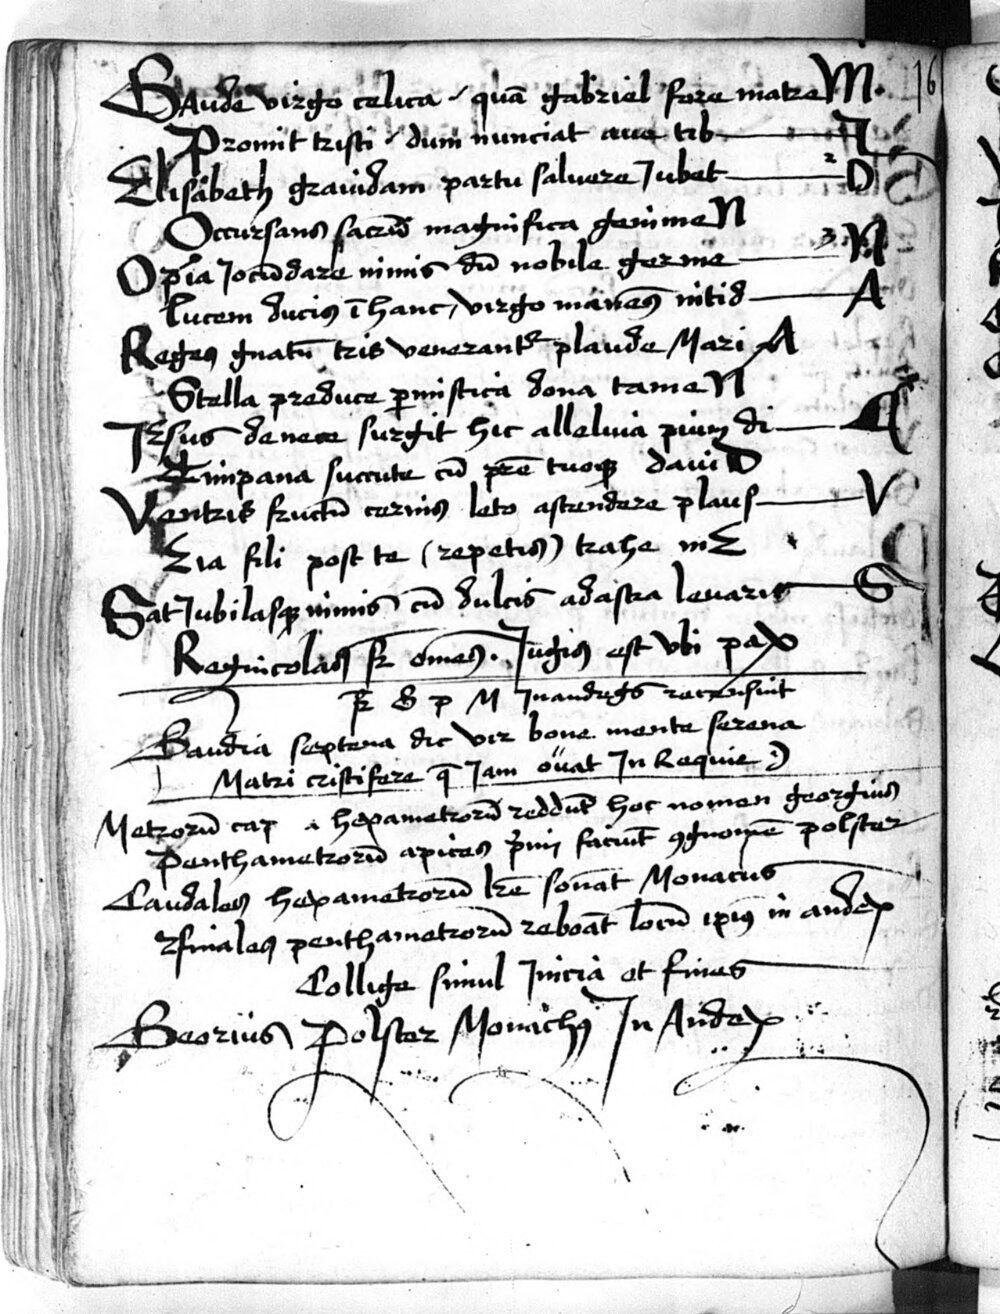 GAude virgo celica / quā gabriel fore matreM. 16
Promit tristi / dum nunciat aue tib I
Elisabeth grauidam partu saluere Jubet D
Occursans sacrū magnifica gemmeN
Opīa Jocūdare nimis dū nobile germe N
Lucem ducis ī hanc / virgo manens nitid A
Reges gnatū tris venerantr plaude Mari A
Stella preduce pmistica dona tameN
Jesus denece surgit hic alleluia pium di C
Timpana succute cū pre tuoqȝ dauiD
Ventris fructū cernis leto astendere plaus V
Eia fili post te (repetis) trahe mE
Sat Jubilasqȝ nimis cū dulcis adastra leuaris S
Regnicolas fr omes. Jugis est vbi paX
fr G p M Jnandegs recensuit
Gaudia septena dic vir bone mente serena
Matri cristifere q Jam ouat Jn Requie :)
Metrorū cap a hexametrorū reddūt hoc nomen georgius
Penthametrorū apices pmi faciūt ꝯgnomē polster
Caudales hexametrorū lre sonāt Monacus
finales penthametrorū reboāt locū ipius in andex
Collige simul Jnicia et fines
Georius Polster Monachꝰ Jn Andex